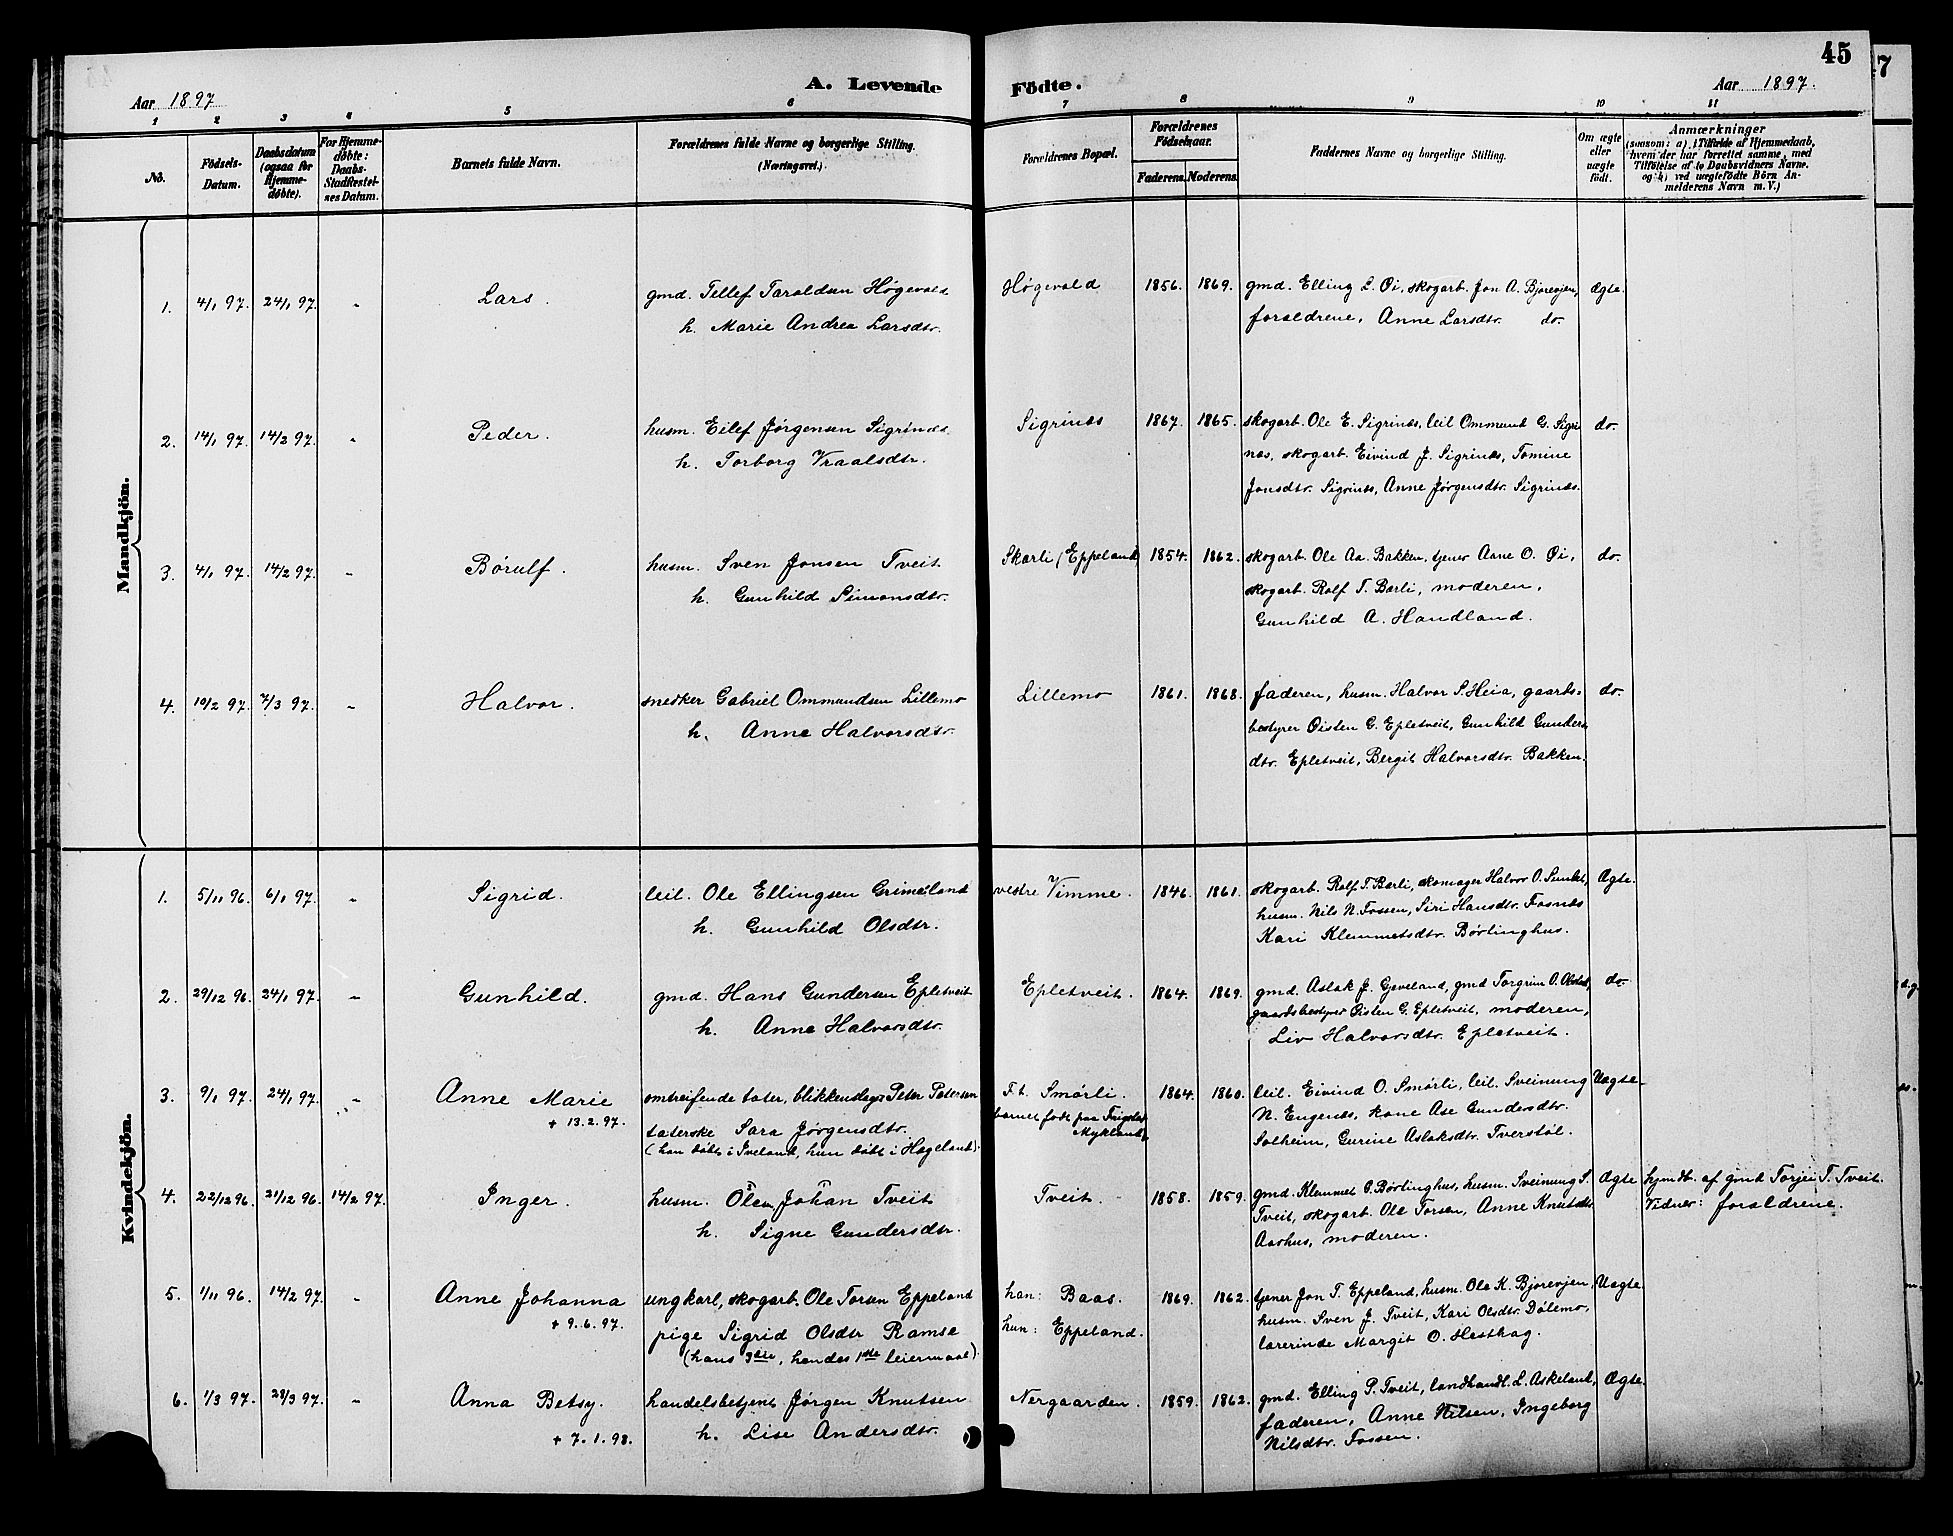 45
7
A. Levende Födte.
Aar 1897
Aar 1897.
1 2 3 4 5 6 7 8 9 10 11
No.
Födsels-Datum.
Daabsdatum (ogsaa for Hjemme-döbte).
For Hjemme-döbte: Daabs-Stadfæstel-ses Datum.
Barnets fulde Navn.
Forældrenes fulde Navne og borgerlige Stilling. (Næringsvei.)
Forældrenes Bopæl.
Forældrenes Födselsaar.
Faderens. Moderens.
Faddernes Navne og borgerlige Stilling.
Om ægte eller uægte födt.
Anmærkninger
(saasom: a) i Tilfælde af Hjemmedaab,
hvem der har forrettet samme, med
Tilföielse af to Daabsvidners Navne.
og b) ved uægtefödte Börn An-
melderens Navn m. V.)
Mandkjön.
1. 4/1 97. 24/1 97. - Lars. gmd. Tellef Taraldsen Högevold Högevold 1856. 1869. gmd. Elling L. Øi, skogarb. Jon A. Bjorevjen, Ægte.
h. Marie Andrea Larsdtr. forældrene, Anne Larsdtr. do.
2. 14/1 97. 14/2 97. - Peder. husm. Eilef Jørgensen Sigrinæs. Sigrinæs 1867. 1865. skogarb. Ole E. Sigrinæs, leil Ommund G. Sigri do.
h. Torborg Vraalsdtr. næs, skogarb. Eivind J. Sigrinæs, Tomine
Jonsdtr. Sigrinæs, Anne Jørgensdtr. Sigrinæs.
3. 4/1 97. 14/2 97. - Børulf. husm. Sven Jonsen Tveit Skarli (Eppeland) 1854. 1862. skogarb. Ole Aa. Bakken, tjener Anne O. Øi, do.
h. Gunhild Simonsdtr. skogarb. Rolf T. Bærli, moderen,
Gunhild A. Handland.
4. 10/2 97. 7/3 97. - Halvor. snedker Gabriel Ommundsen Lillemo Lillemo 1861. 1868. faderen, husm. Halvor S. Heia, gaards- do.
h. Anne Halvorsdtr. bestyrer Øisten G. Epletveit, Gunhild Gunders
dtr. Epletveit, Bergit Halvorsdtr. Bakken.
Kvindekjön.
1. 5/11 96. 6/1 97. - Sigrid. leil. Ole Ellingsen Grimeland vestre Vimme. 1846. 1861. skogarb. Rolf T. Bærli, skomager Halvor O. Ægte.
h. Gunhild Olsdtr. husm. Nils N. Fossen, Siri Hansdtr. Fosnæs
Kari Klemmetsdtr. Børlinghus.
2. 29/12 96. 24/1 97. - Gunhild. gmd. Hans Gundersen Epletveit Epletveit. 1864. 1869. gmd. Aslak J. Gjeveland, gmd Torgrim O. do.
h. Anne Halvorsdtr. gaardsbestyrer Øisten G. Epletveit, moderen,
Liv Halvorsdtr. Epletveit.
3. 9/1 97. 24/1 97. - Anne Marie omtreifende tater, blikkenslager Peter Petersen F. t. Smørli. 1864. 1860. leil. Eivind O. Smørli, leil. Sveinung Uægte.
+ 13.2.97. taterske Sara Jørgensdtr. barnet født paa Mykland N. Engenæs, kone Ase Gundersdtr.
(han døbt i Iveland, hun døbt i Hægeland). Solheim, Gurine Aslaksdtr. Tverstøl.
4. 22/12 96. 31/12 96. 14/2 97. Inger. husm. Olen Johan Tveit Tveit. 1858. 1859. gmd. Klemmet O. Børlinghus, husm. Sveinung S. Ægte hjmdt. af gmd Torjei T. Tveit.
h. Signe Gundersdtr. Tveit, skogarb. Ole Torsen, Anne Knutsdtr Vidner: forældrene.
Aarhus, moderen.
5. 1/11 96. 14/2 97. - Anne Johanna ungkarl, skogarb. Ole Torsen Eppeland han: Baas. 1869. 1862. tjener Jon T. Eppeland, husm. Ole K. Bjorevjen Uægte.
+ 9.6.97. pige Sigrid Olsdtr Ramse hun: Eppeland. husm. Sven J. Tveit, Kari Olsdtr. Dølemo,
(hans 3die, hendes 1ste leiermaal) lærerinde Margit O. Hesthag.
6. 1/3 97. 28/3 97. - Anna Betsy. handelsbetjent Jørgen Knutsen Nergaarden. 1859. 1862. gmd. Elling P. Tveit, landhandl. L. Askeland, Ægte.
+ 7.1.98. h. Lise Andersdtr. faderen, Anne Nilsen, Ingeborg
Nilsdtr. Fossen.